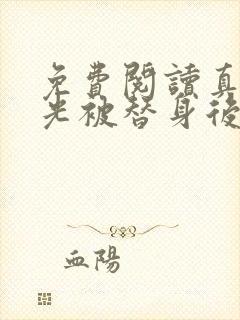 免費閱讀真
光被替身後
血陽